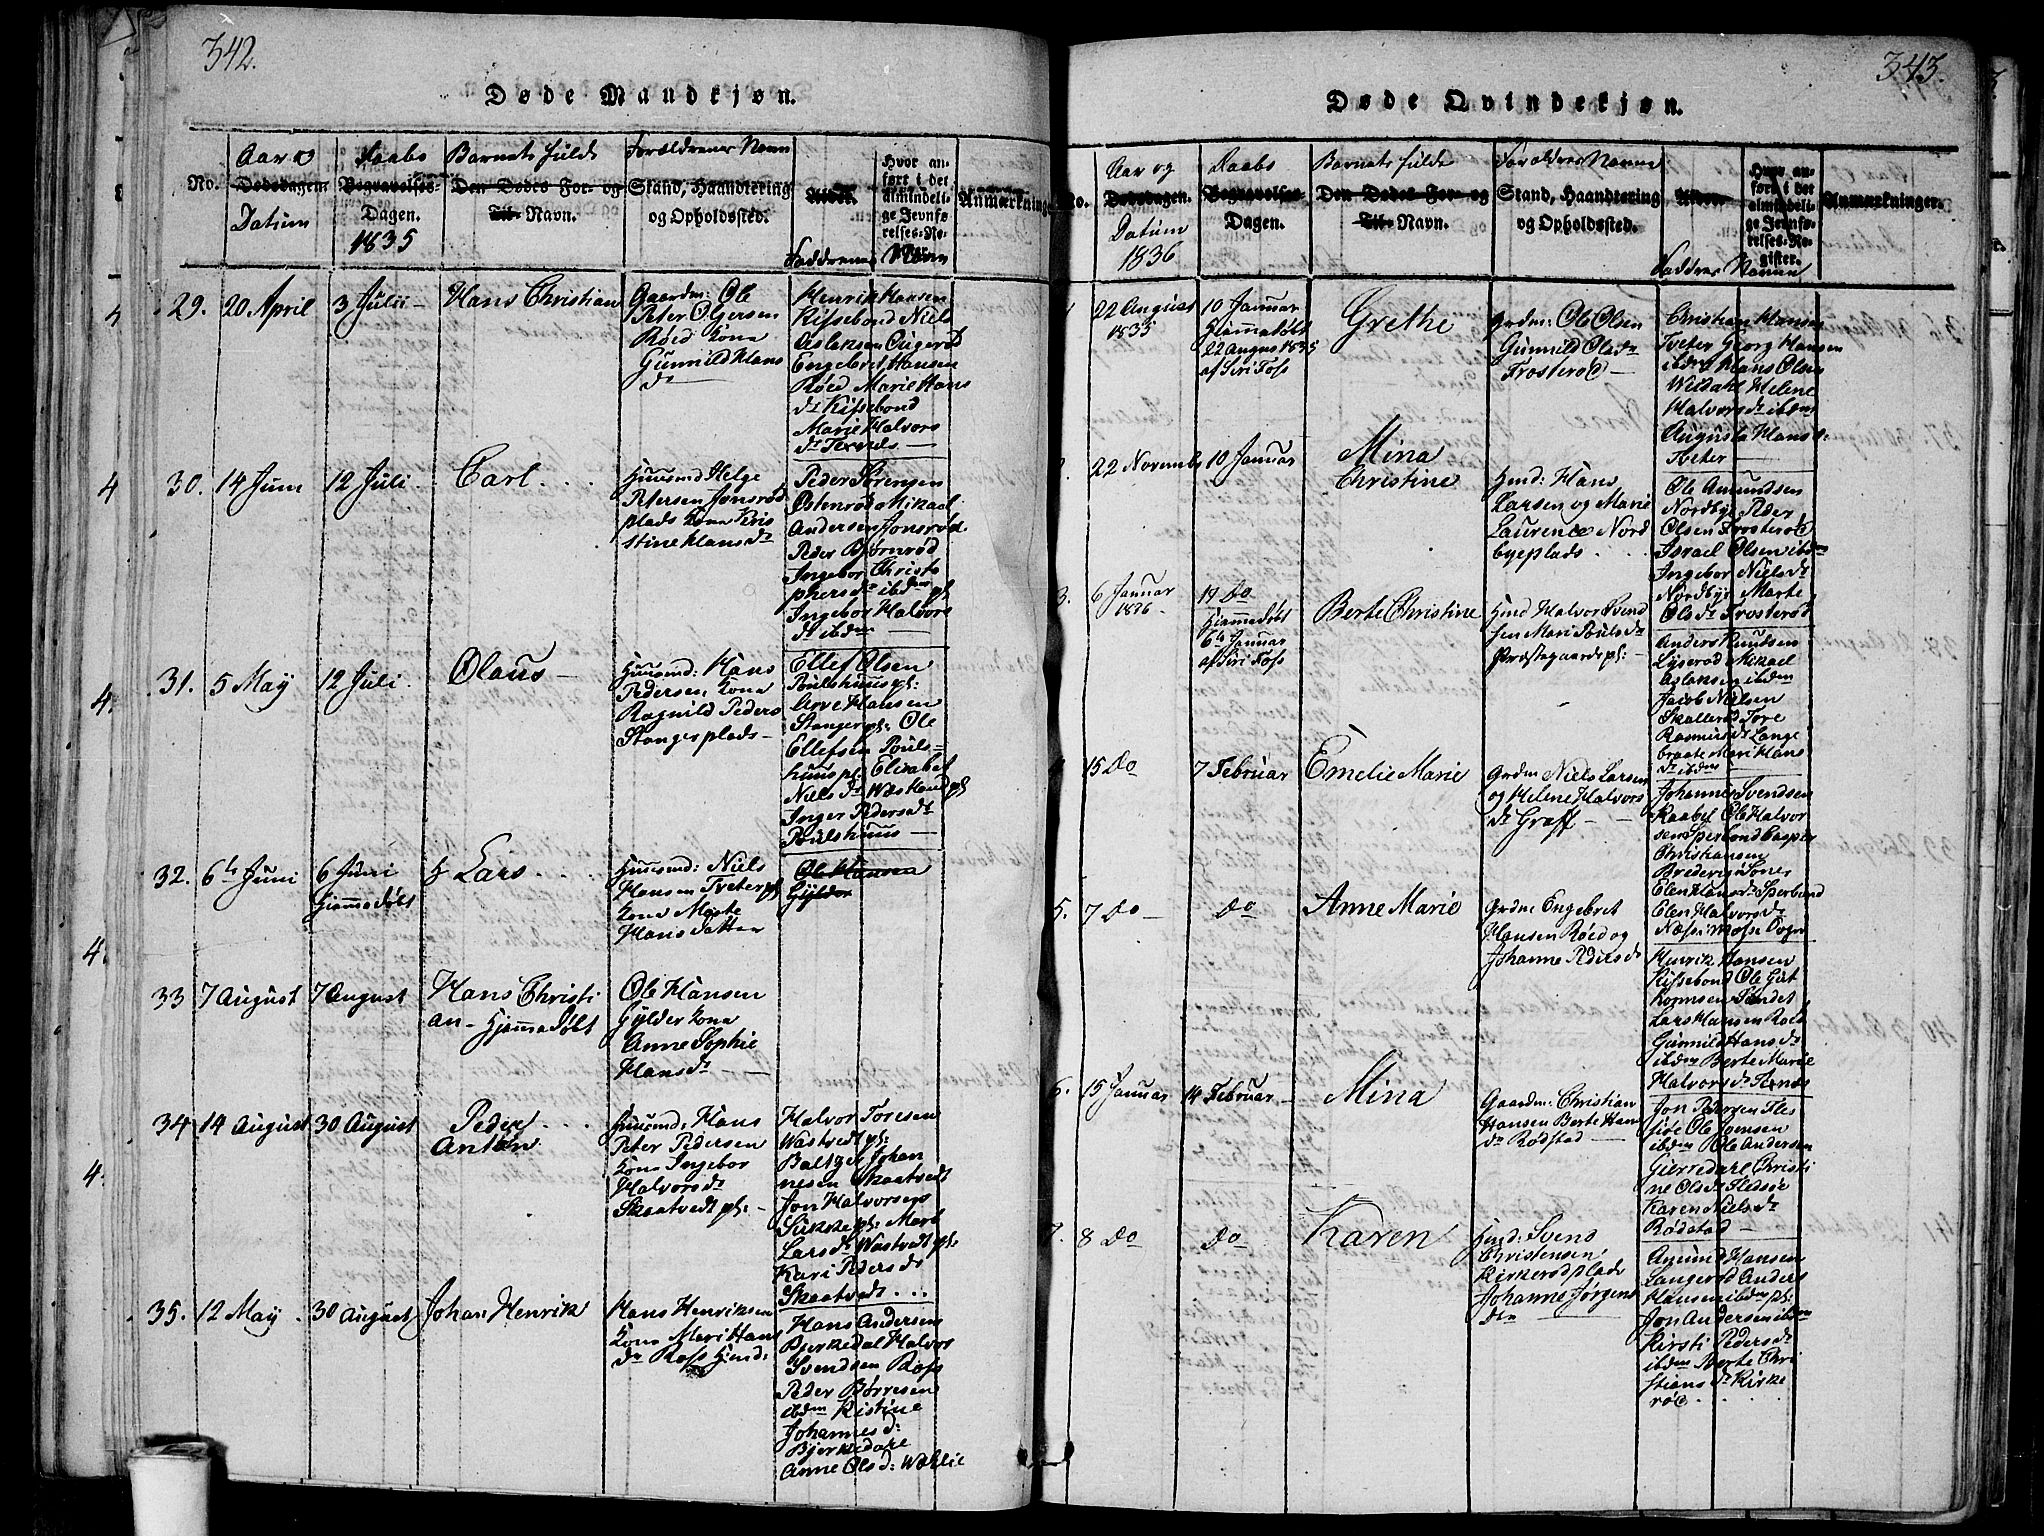 342.
Døde Mandkjøn.
No.
Aar og
Dødsdagen.
Datum
Daabs
Begravelses-
Dagen.
1835
Barnets fulde
Den Dødes For- og
Til- Navn.
Forældrenes Navn
Stand, Haandtering
og Opholdssted.
Alder.
Faddrenes Navn
Hvor an-
ført i det
almindeli-
ge Jevnfø-
relses-Re-
Anmærkninge
29.
20 April
3 Julii
Hans Christian
Gaardm: Ole
Peter O Gersen
Røed Kona
Gunnild Hans
dr
Henrik Hansen
Kifsebond Niels
Aslaksen
Engebret Hansen
Røed Marie Hans
dr Kifsebond
Marie Halvors
dr Ternes
30.
14 Juni
12 Juli
Carl
Huusmd Helge
Petersen Jonsrød
plads Kona Kris
stine Hans dr
Peder Sørensen
Østenrød Mikael
Andersen Jonsrød
Peder Bjørnrød
Ingebor Christo
phersdr ibdm pl
Ingebor Halvors
dr ibdm
31.
5 May
12 Juli
Olaus
Huusmd: Hans
Pedersen Kona
Ragnild Peders
Stanger plads
Ellef Olsen
Poulshuus pl:
Arve Hansen
Stanger pl: Ole
Ellefsen Pouls-
huus pl: Elisabet
Niels dr Wæskaud pl
Inger Peders dr
Poulshuus
32.
6te Juni
6 Juni
Hjemmedøbt
Lars
Huusmd: Niels
Hansen Tveter pl
Kona
Hansdatter
Ole Hansen
Gylder
33
7 August
7 August
Hans Christi
an - Hjemmedøbt
Ole Hansen
Gylder Kona
Anne Sophie
Hansdr
34
14 August
30 August
Peder
Anton
Huusmd: Hans
Peter Pedersen
Kona Ingebor
Halvorsdr
Skaatvedt pl:
Halvor Toresen
Wastvedt pl:
Baltzer Johan
nesen Skaatvedt
Jon Halvorsen
Sukke pl: Mari
Larsdr Wastvedt pl:
Kari Pedersdr
Skaatvedt
35.
12 May
30 August
Johan Henrik
Hans Henriksen
Kona Mari Hans
dr Rafs Hmd:
Hans Andersen
Bjerkedal Halvor
Svendsen Rafs
Peder Børresen
ibdm Kistine
Johannes d:
Bjerkedale
Anne Ols d: Wæhlie
343.
Døde Qvindekjøn.
No.
Aar og
Dødsdagen.
Datum
1836
Daabs
Begravelses
Dagen.
Barnets fulde
Den Dødes For- og
Til- Navn.
Forældres Navne
Stand, Haandtering
og Opholdssted.
Alder
Faddres Navne
Hvor an-
ført i det
almindeli-
ge Jevnfø-
relses-Re-
gister.
Anmærkninger.
22 August
1835
10 Januar
Hjemmedøbt
22 August 1835
af Siri Fofs
Grethe
Grdm: Ole Olsen
Gunnild Olsdr
Trosterød
Christian Hansen
Tveter Georg Hansen
ibdm Hans Olsen
Weidahl Helene
Halvorsdr ibdm
Augusta Hansd:
Tveter
22 Novembr
10 Januar
Mina
Christine
Hmd: Hans
Larsen og Marie
Laurence Nord
byeplads
Ole Amundsen
Nordbye Peder
Olsen Trosterød
Israel Olsen ibdm
Ingebor Nielsdr
Nordbye Marte
Olsdr Trosterød
3.
6 Januar
1836
17 Do
Hjemmedøbt
6te Januar
af Siri Fofs
Berte Christine
Hmd Halvor Svend
sen Mari Poulsdr
Præstegaards pl:
Anders Knudsen
Lyserød Mikael
Aslaksen ibdm
Jacob Nielsen
Skallerød Tore
Rasmusdr Lange
braate Mari Hans
dr ibdm
15 Do
7 Februar
Emelie Marie
Grdm Niels Larsen
og Helene Halvors
dr Graff
Johannes Svendsen
Kaabel Ole Halvor
sen Sperbond Casper
Christiansen
Brederig Soner
Elen Hansdr Sperbund
Elen Halvorsdr
Næfs i Mofse Sogn
5.
7 Do
Do
Anne Marie
Grdm Engebret
Hansen Røed og
Johanne Pedersdr
Henrik Hansen
Kifsebond Ole Gut
Kormsen Sundet
Lars Hansen Roed
Gunnild Hansdr
ibdm Berte Marie
Halvorsdr Ternes
6.
15 Januar
14 Februar
Mina
Gaardm: Christian
Hansen Berte Hans
dr Rødstad
Jon Pedersen Fles
siøe Ole Joensen
ibdm Ole Andersen
Gierredale Christi
ne Olsdr Flessøe
Karen Nielsdr
Rødstad
7.
8 Do
Do
Karen
Hmd: Svend
Christensen
Kirkerødplads
Johanne Jørgens
dtr
Amund Hansen
Langerød Anders
Hansen ibdm pl:
Jon Andersen ibdm
Kirsti Pedersdr
ibdm Berte Chri
stians dr Kirke
rød
4
4
4.
4.
4.